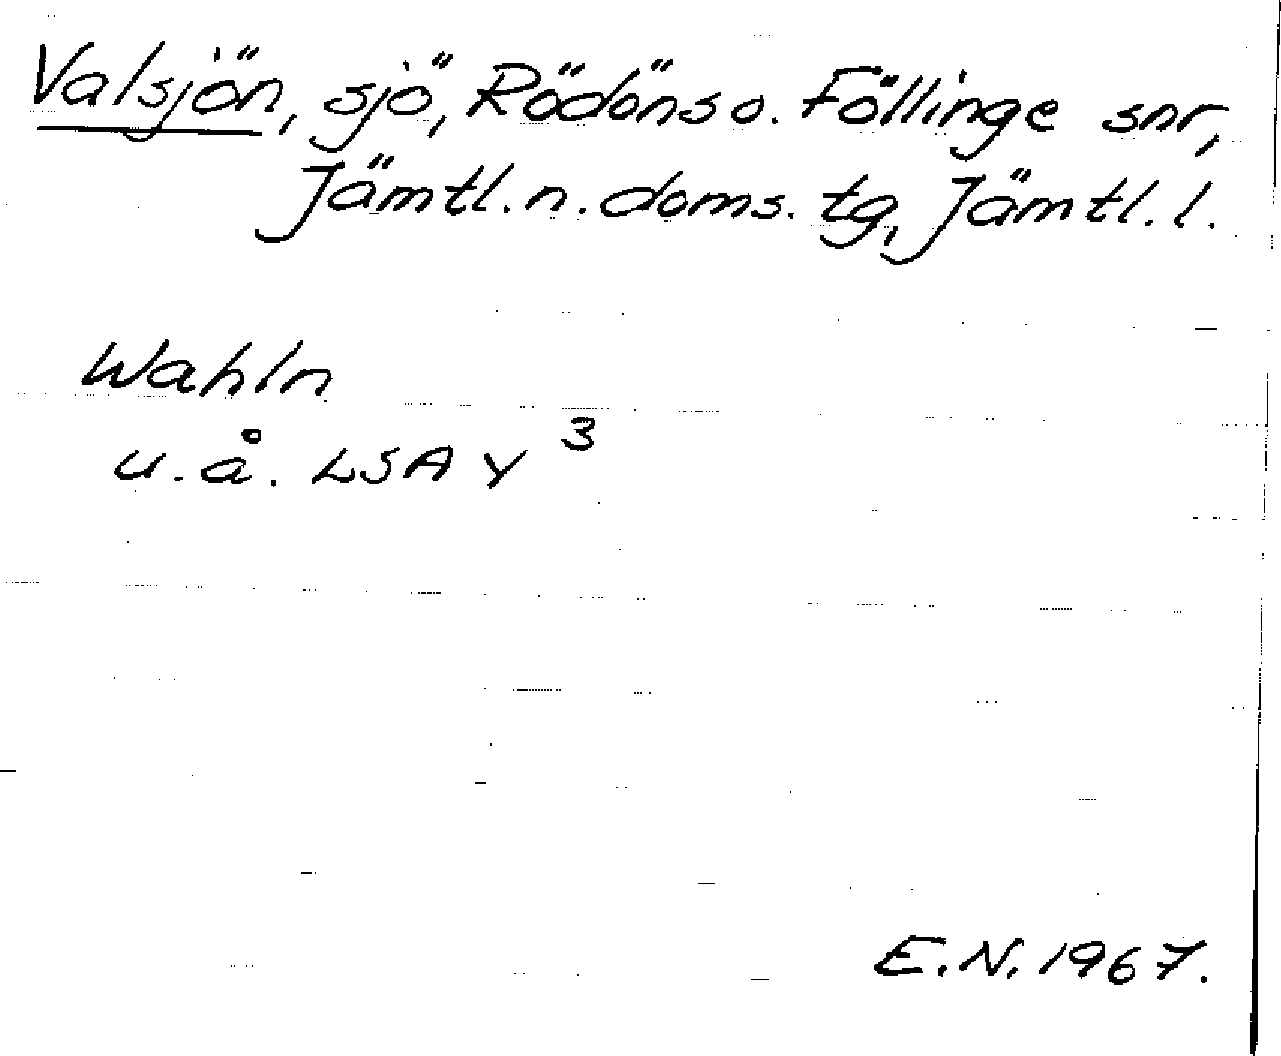 Valsjön, sjö, Rödöns o. Föllinge snr,
Jämtl. n. doms. tg, Jämtl. l.
Wahln
u. å. LSA Y 3
E.N. 1967.